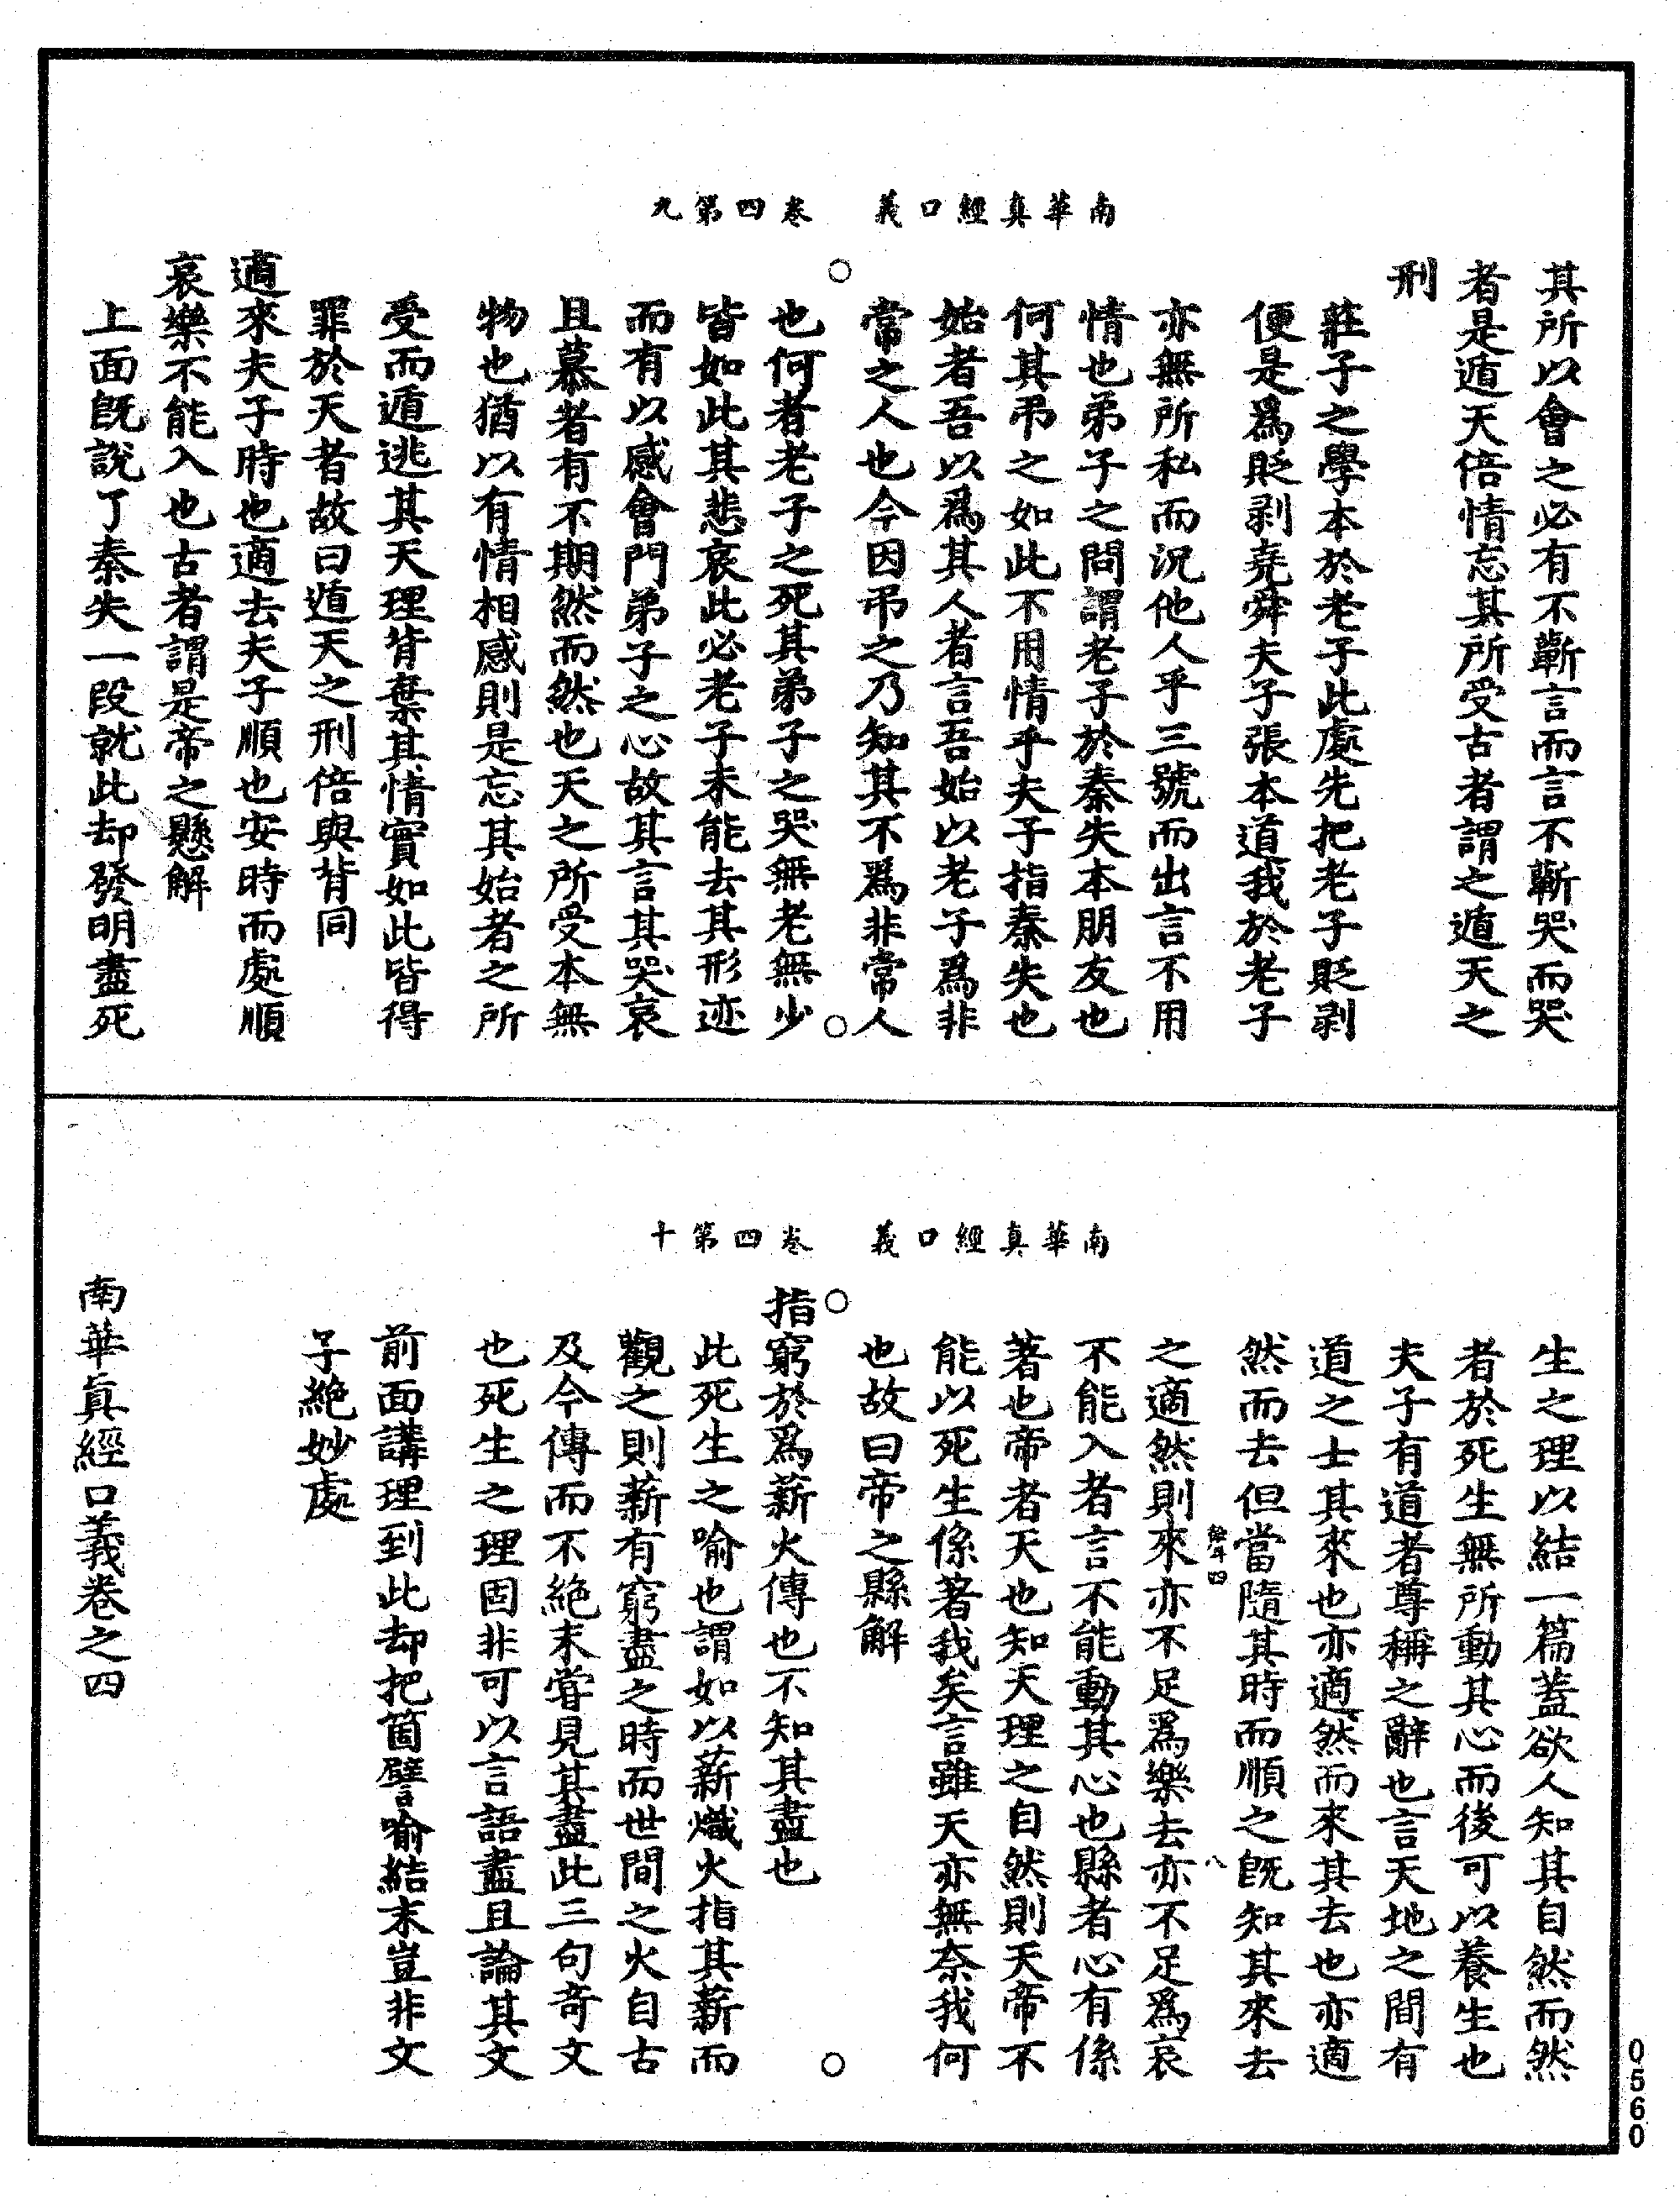 南華真經口義　卷四第九
其所以會之必有不蘄言而言不蘄哭而哭
者是遁天倍情忘其所受古者謂之遁天之
刑
莊子之學本於老子此處先把老子貶剥
便是爲貶剥堯舜夫子張本道我於老子
亦無所私而況他人乎三號而出言不用
情也弟子之問謂老子於秦失本朋友也
何其弔之如此不用情乎夫子指秦失也
始者吾以爲其人者言吾始以老子爲非
常之人也今因弔之乃知其不爲非常人
也何者老子之死其弟子之哭無老無少
皆如此其悲哀此必老子未能去其形迹
而有以感會門弟子之心故其言其哭哀
且慕者有不期然而然也天之所受本無
物也猶以有情相感則是忘其始者之所
受而遁逃其天理背棄其情實如此皆得
罪於天者故曰遁天之刑倍與背同
適來夫子時也適去夫子順也安時而處順
哀樂不能入也古者謂是帝之懸解
上面旣說了秦失一段就此却發明盡死
南華真經口義　卷四第十
生之理以結一篇蓋欲人知其自然而然
者於死生無所動其心而後可以養生也
夫子有道者尊稱之辭也言天地之間有
道之士其來也亦適然而來其去也亦適
然而去但當隨其時而順之旣知其來去
之適然則來亦不足爲樂去亦不足爲哀
不能入者言不能動其心也縣者心有係
著也帝者天也知天理之自然則天帝不
能以死生係著我矣言雖天亦無奈我何
也故曰帝之縣解
指窮於爲薪火傳也不知其盡也
此死生之喻也謂如以薪熾火指其薪而
觀之則薪有窮盡之時而世間之火自古
及今傳而不絕未嘗見其盡此三句奇文
也死生之理固非可以言語盡且論其文
前面講理到此却把箇譬喻結末豈非文
子絕妙處
南華眞經口義卷之四
0560